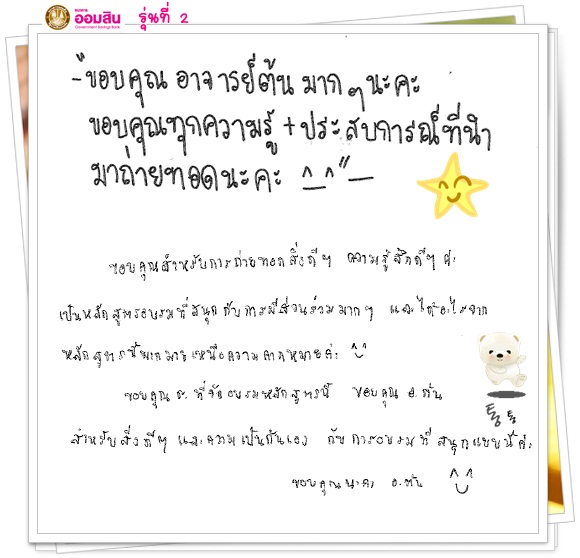 ธนาคาร
ออมสิน รุ่นที่ 2
Government Savings Bank
-"ขอบคุณ อาจารย์ต้น มาก ๆ นะคะ
ขอบคุณทุกความรู้ + ประสบการณ์ที่นำ
มาถ่ายทอดนะคะ ^_^"-
ขอบคุณสำหรับการถ่ายทอดสิ่งดีๆ ความรู้สึกดีๆ ค่ะ
เป็นหลักสูตรอบรมที่สนุกกับการมีส่วนร่วมมากๆ และได้อะไรจาก
หลักสูตรนี้มากมายเหนือความคาดหมายค่ะ ^_^
ขอบคุณ ที่จัดอบรมหลักสูตรนี้ ขอบคุณ อ.ต้น
สำหรับสิ่งดีๆ และความเป็นกันเอง กับการอบรมที่สนุกแบบนี้ค่ะ
ขอบคุณนะคะ อ.ต้น ^_^